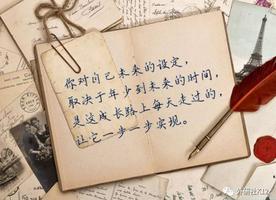 你对自己未来的设定，
取决于年少到未来的时间，
是这成长路上每天走过的，
让它一步一步实现。
外研社K12